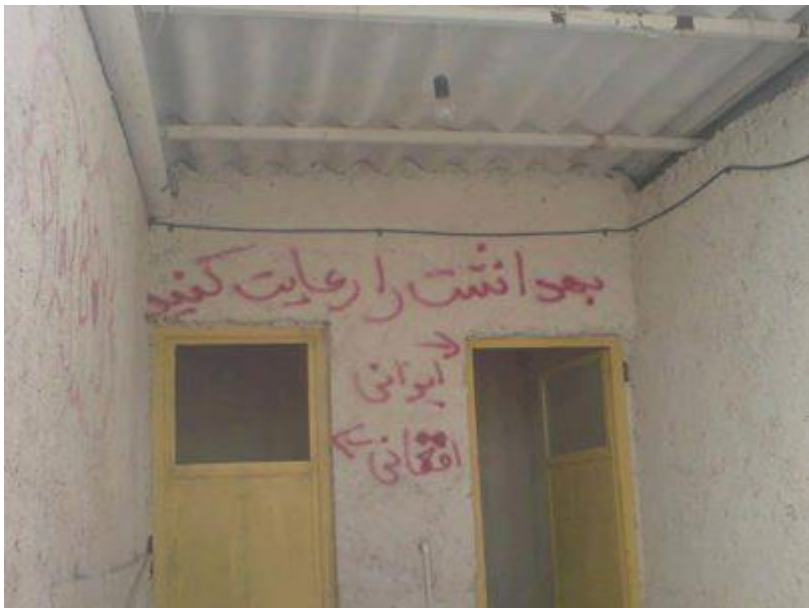 بهداشت را رعایت کنید
ایرانی
افغانی